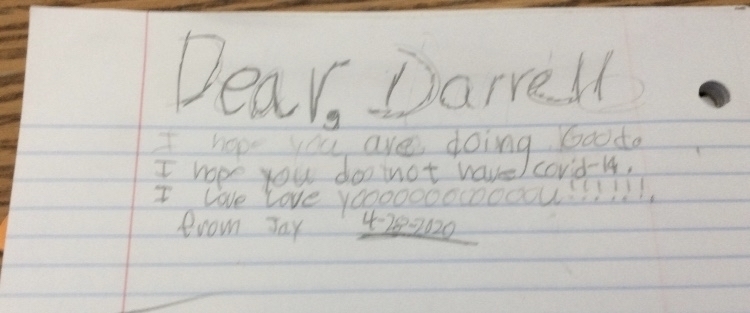 Dear, Darrell
I hope you are doing Good.
I hope you do not have covid-19.
I love love yooooooooooou!!!!!!!.
from Jay 4-28-2020